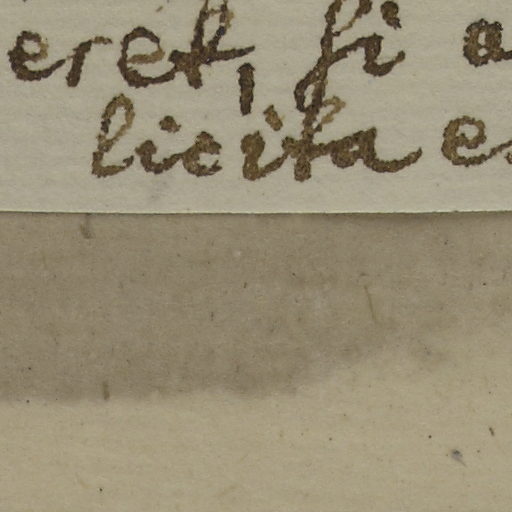 eret, si a
licita es